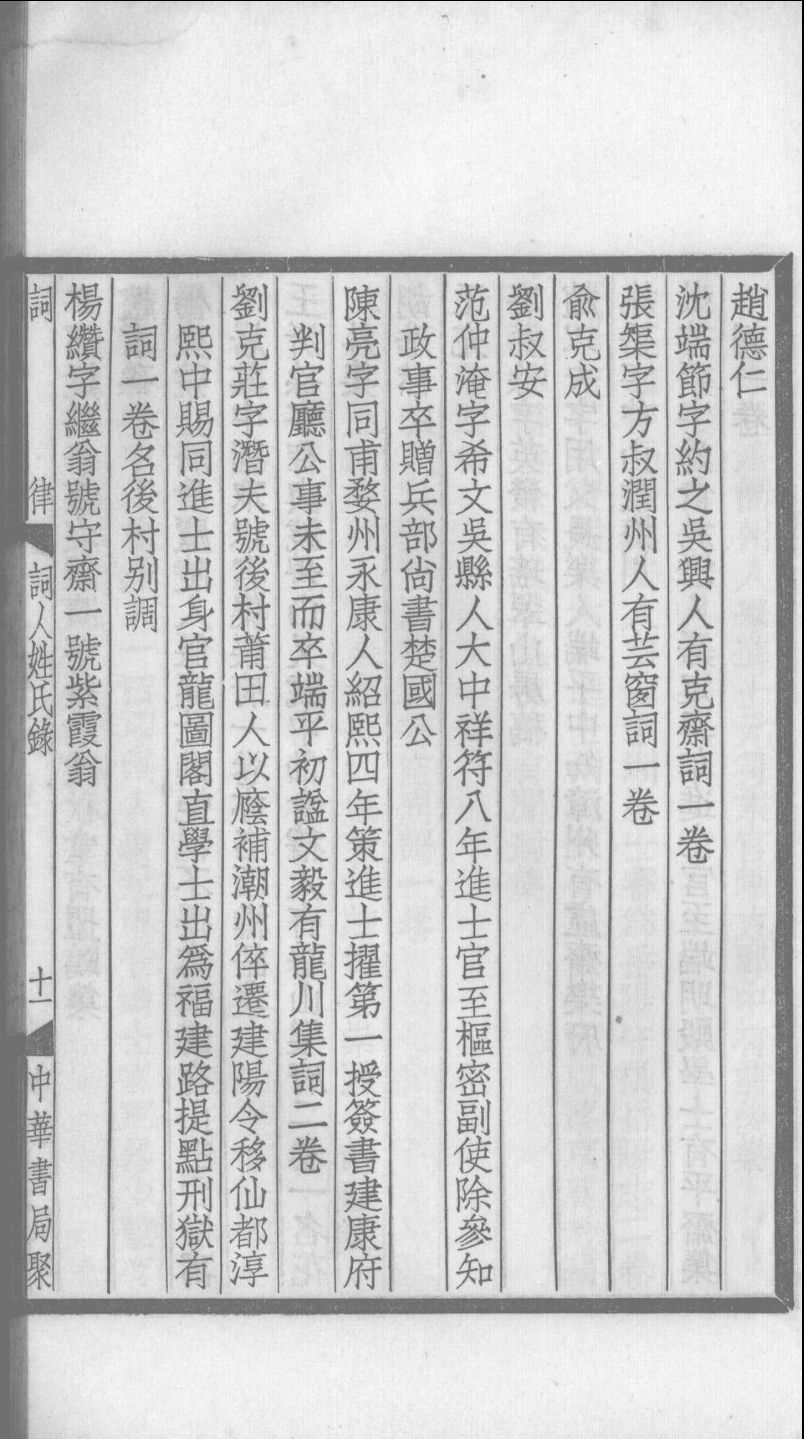 趙德仁
沈端節字約之吳興人有克齋詞一卷
張榘字方叔潤州人有芸窗詞一卷
兪克成
劉叔安
范仲淹字希文吳縣人大中祥符八年進士官至樞密副使除參知
政事卒贈兵部尙書楚國公
陳亮字同甫婺州永康人紹熙四年策進士擢第一授簽書建康府
判官廳公事未至而卒端平初諡文毅有龍川集詞二卷
劉克莊字潛夫號後村莆田人以廕補潮州倅遷建陽令移仙都淳
熙中賜同進士出身官龍圖閣直學士出爲福建路提點刑獄有
詞一卷名後村別調
楊纘字繼翁號守齋一號紫霞翁
詞律 詞人姓氏錄 十一 中華書局聚